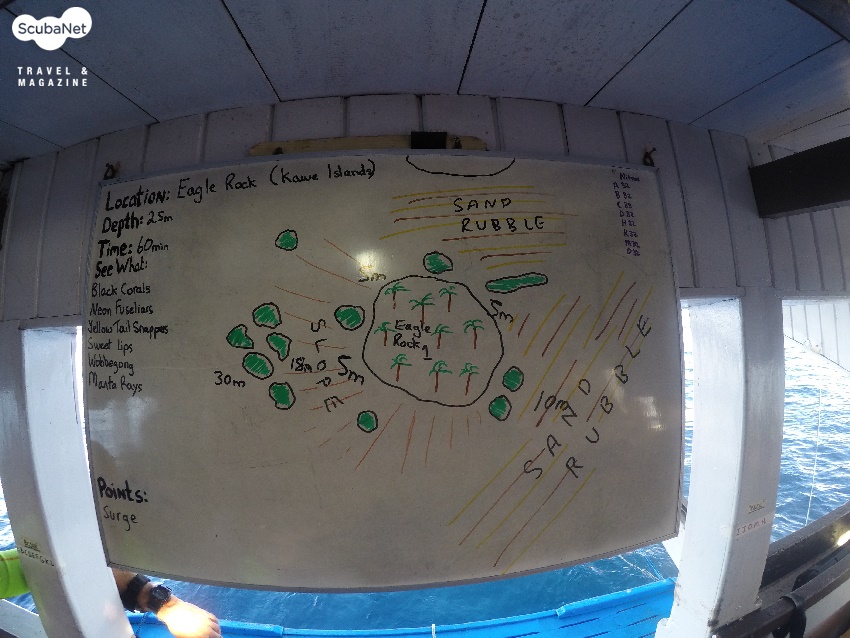 ScubaNet
TRAVEL &
MAGAZINE
Location: Eagle Rock (Kawe Islands)
Depth: 25m
Time: 60min
See What:
Black Corals
Neon Fuseliars
Yellow Tail Snappers
Sweet lips
Wobbegong
Manta Rays
Points:
Surge
SAND
RUBBLE
5m
5m
Eagle
Rock 1
SLOPE
18m
5m
30m
10m
SAND
RUBBLE
Nitrox
A 32
B 32
C 32
D 32